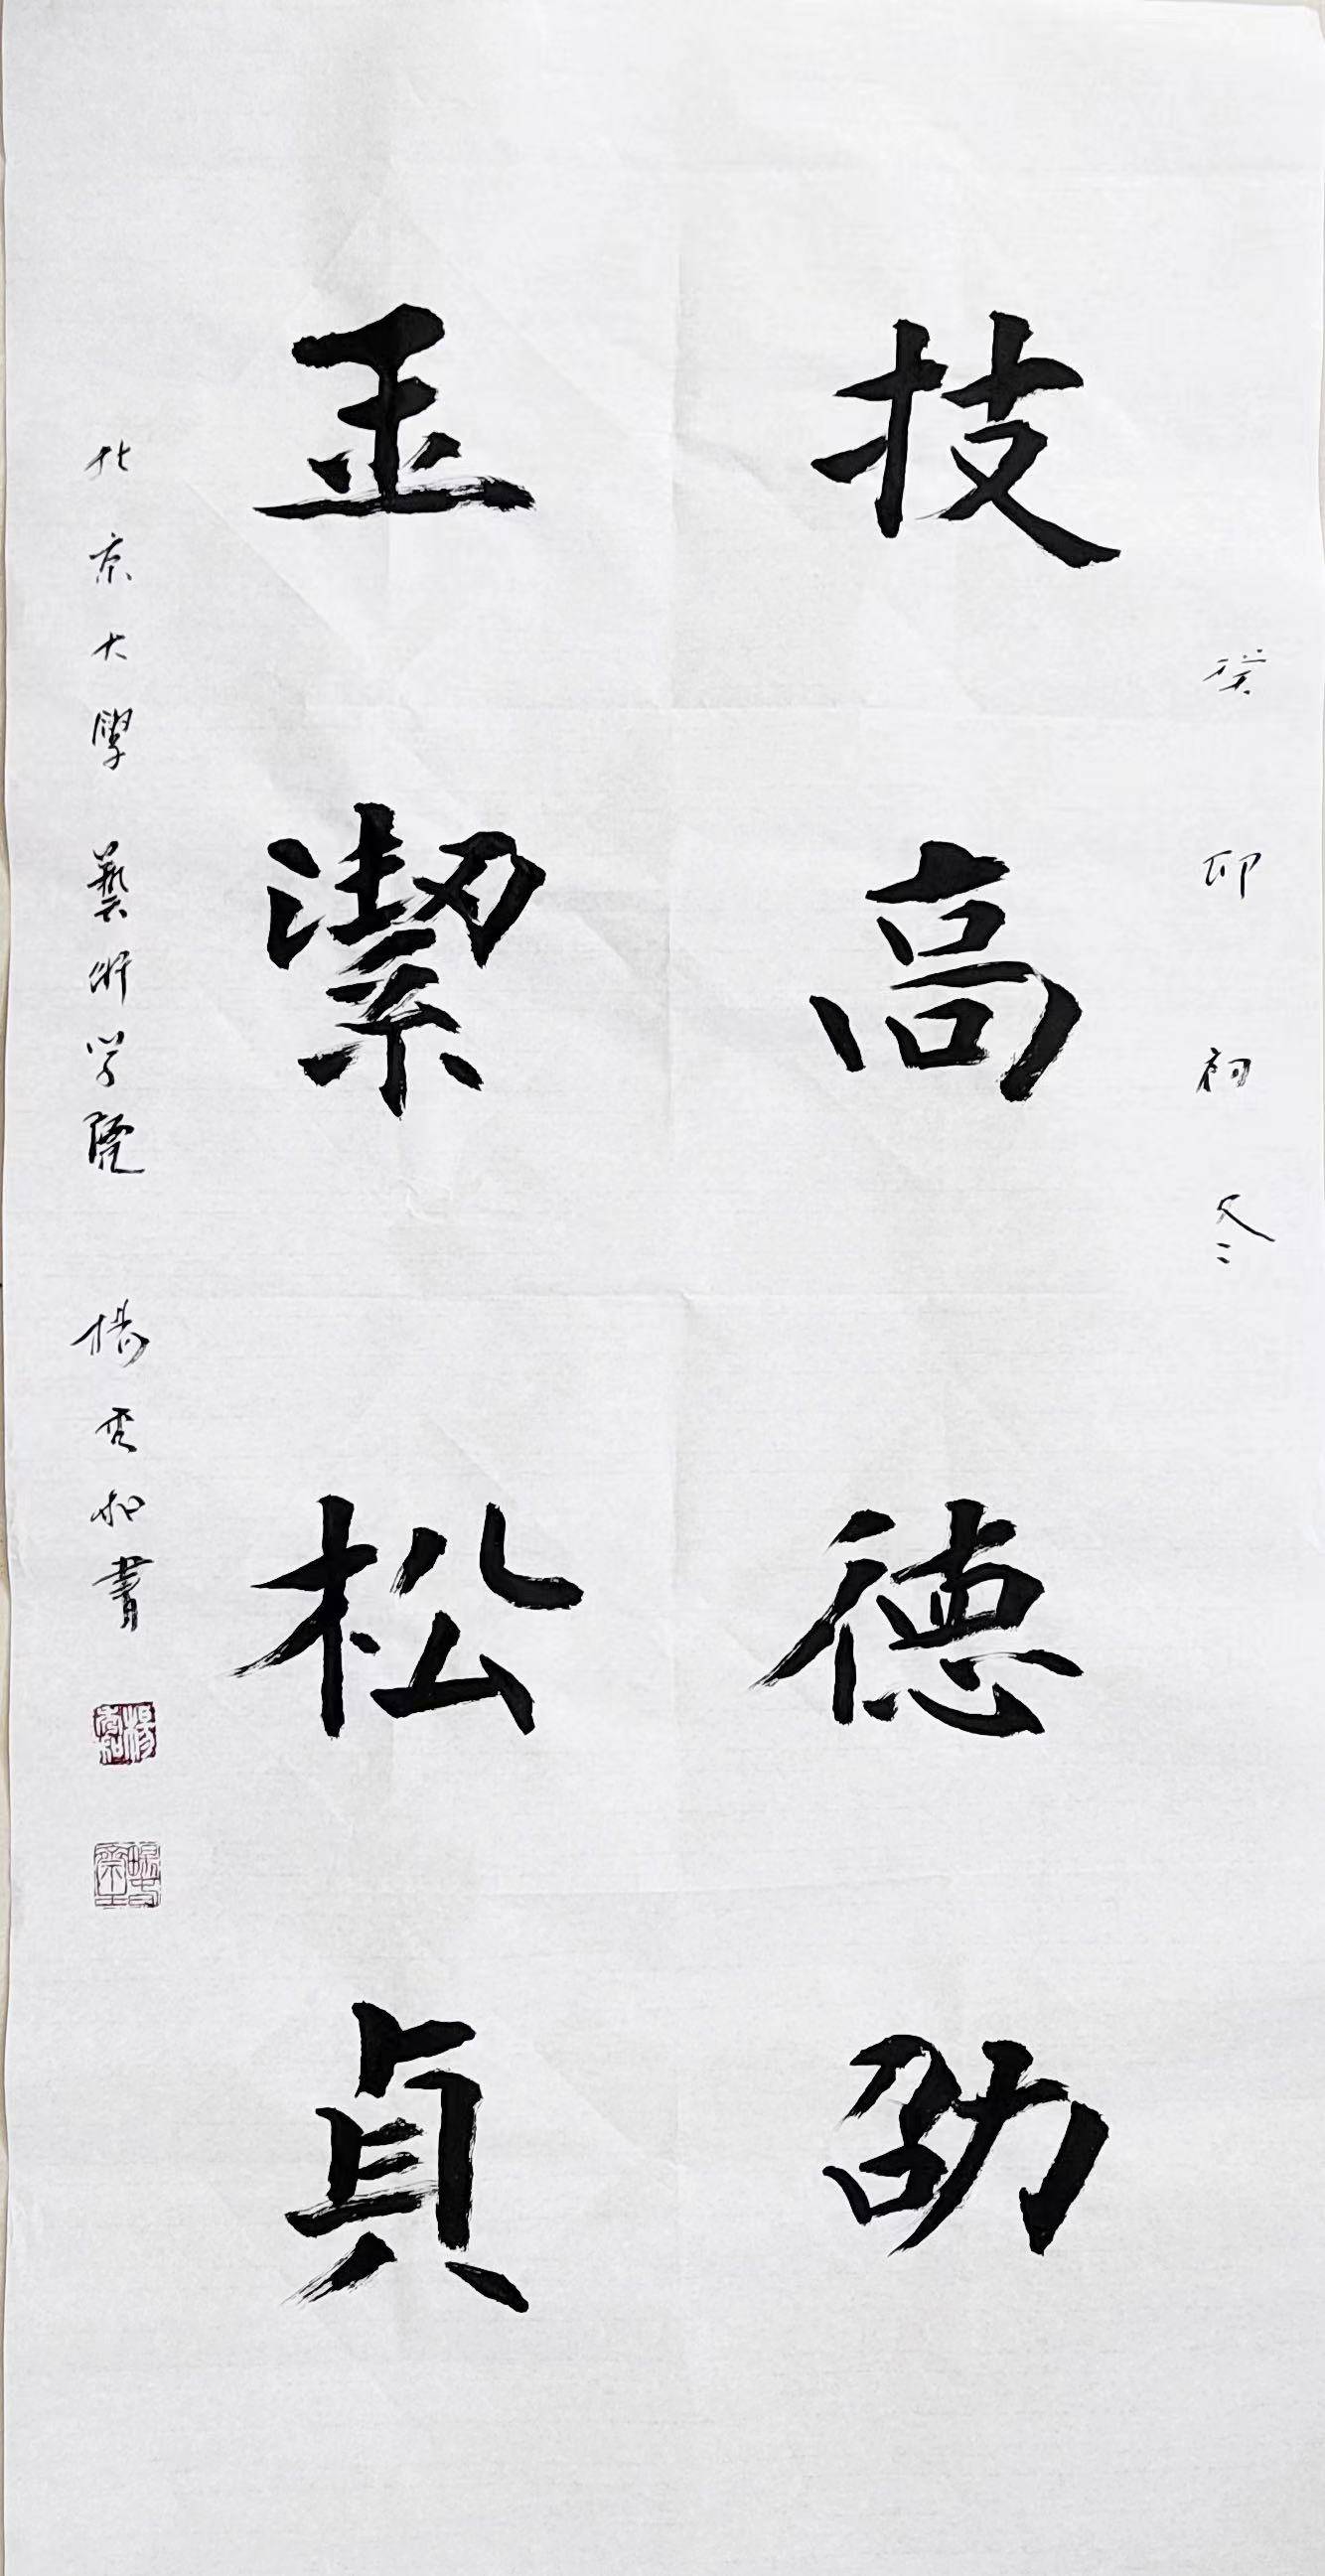 癸卯初冬
技高德劭
玉潔松貞
北京大學藝術学院 楊秀和書
楊秀和